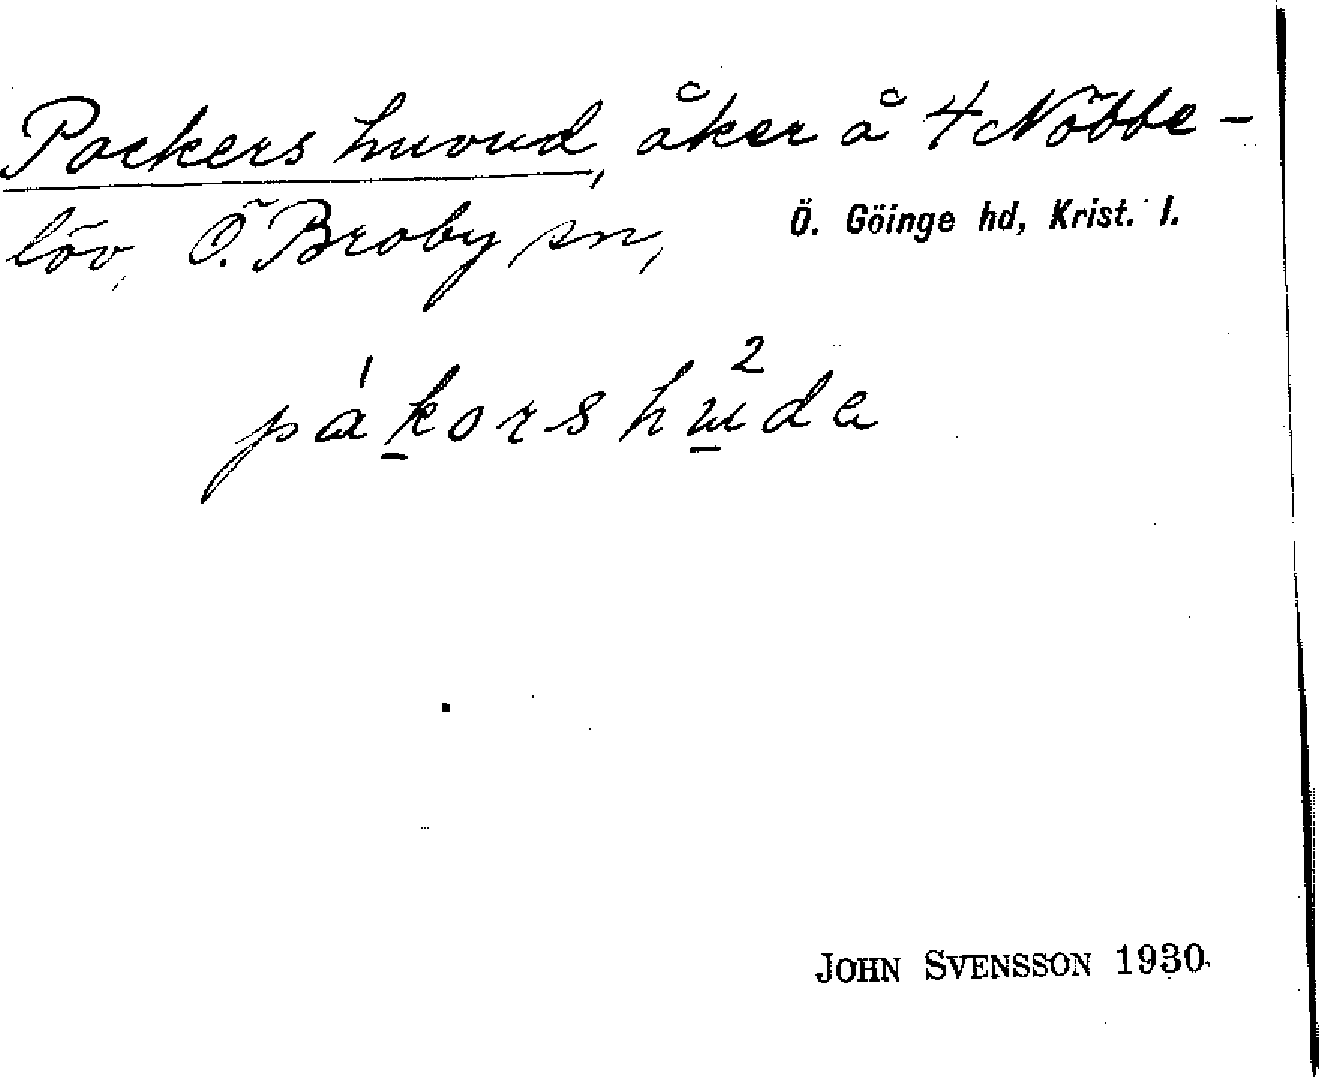 Packers huvud, åker å 4 Nöbbe-
löv, Ö. Broby sn, Ö. Göinge hd, Krist. l.
JOHN SVENSSON 1930.